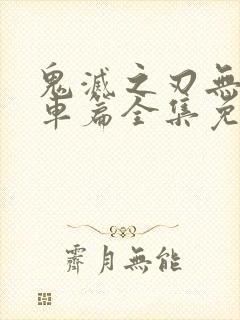 鬼滅之刃無
車篇全集免
霽月無能